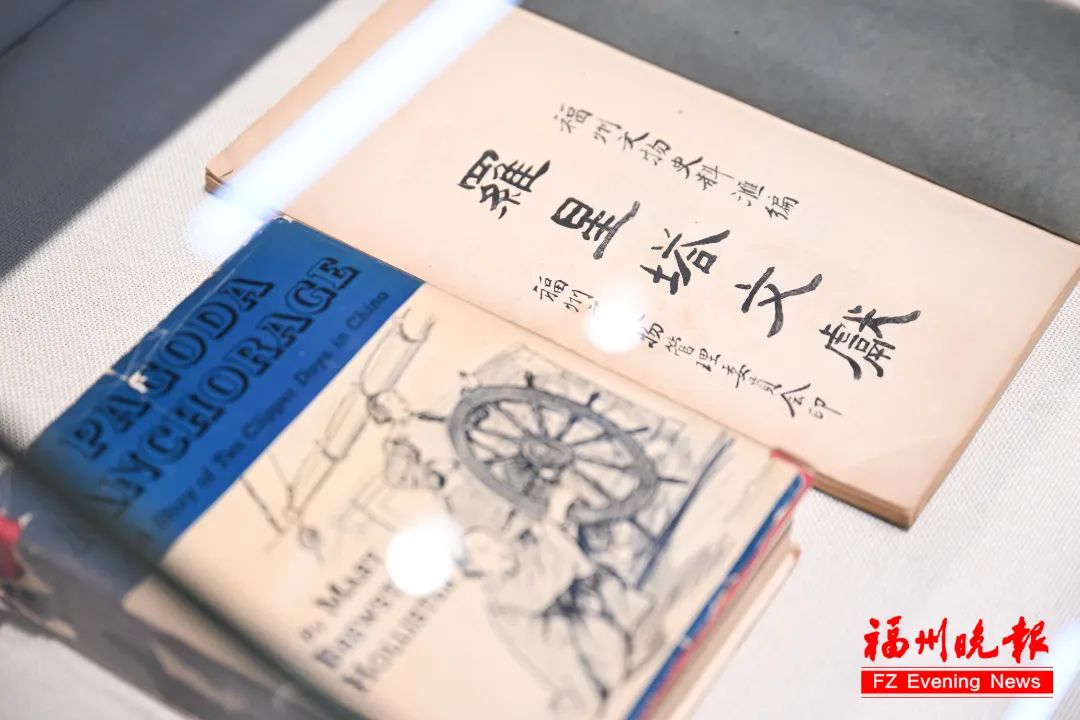 福州文物史料滙編
羅星塔文獻
福州物管理委員会印
PAGODA
ANCHORAGE
Story of Tea Clipper Days in China
by MARY
BREWSTER
HOLLISTER
福州晚报
FZ Evening News